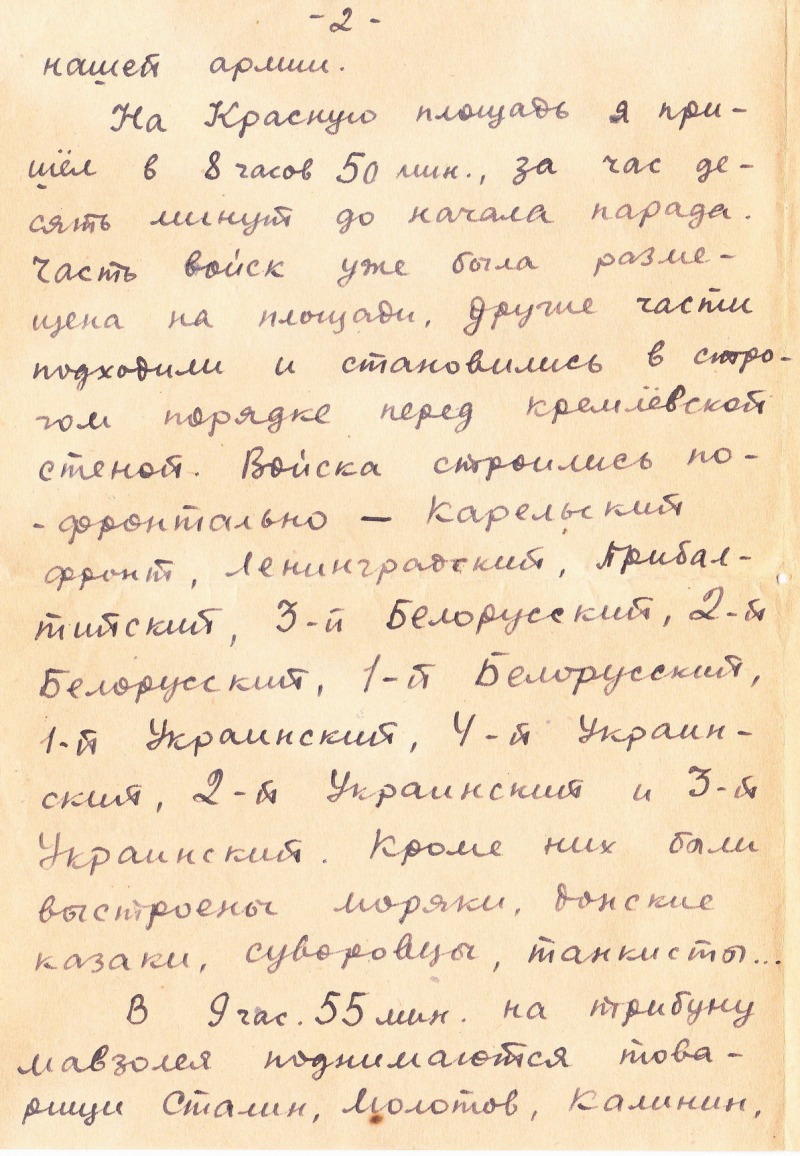 - 2 -
нашей армии.
На Красную площадь я при-
шёл в 8 часов 50 мин., за час де-
сять минут до начала парада.
Часть войск уже была разме-
щена на площади, другие части
подходили и становились в стро-
гом порядке перед кремлёвской
стеной. Войска строились по-
-фронтально — Карельский
фронт, Ленинградский, Прибал-
тийский, 3-й Белорусский, 2-й
Белорусский, 1-й Белорусский,
1-й Украинский, 4-й Украин-
ский, 2-й Украинский и 3-й
Украинский. Кроме них были
выстроены моряки, донские
казаки, суворовцы, танкисты...
В 9 час. 55 мин. на трибуну
мавзолея поднимаются това-
рищи Сталин, Молотов, Калинин,